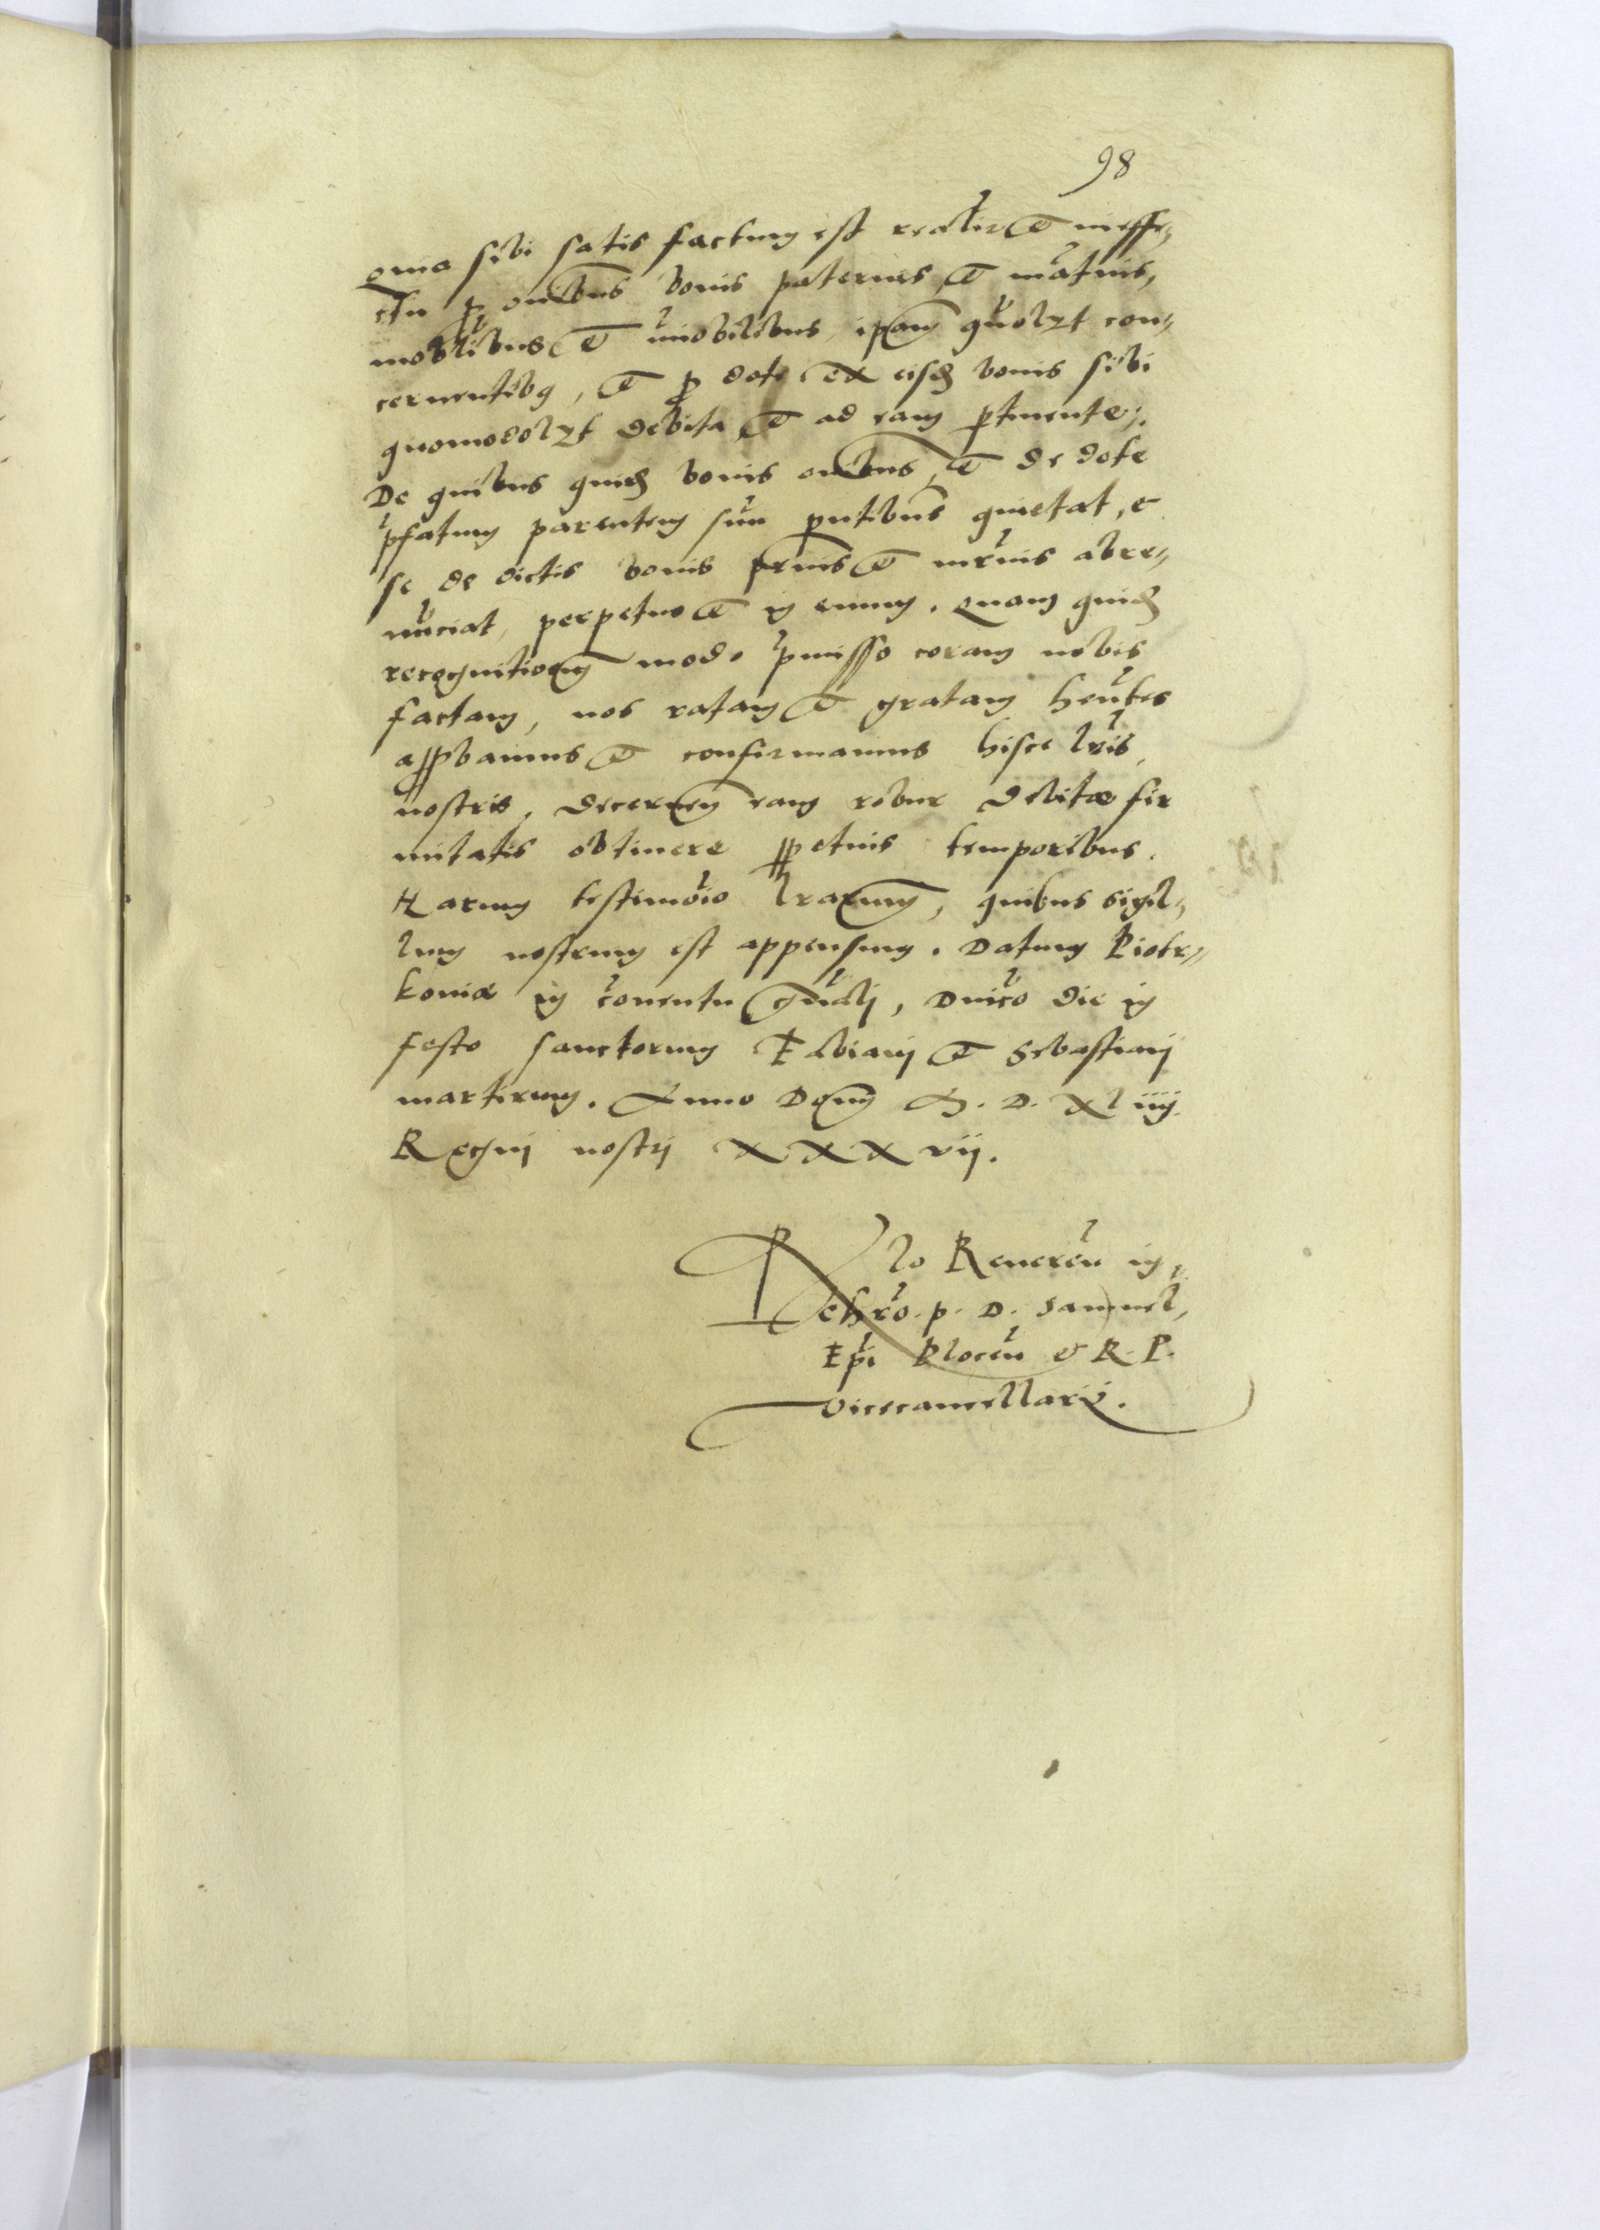 98
Quia sibi satis factum est realir et in effe„
ctu p omibus bonis paternis et matnis,
mobilibus et imobilibus, ipam quolzt con„
cernentibq, et p dote ex eisd bonis sibi
quomodolzt debita et ad eam ptinente.
De quibus quid bonis omibus, et de dote
pfatum parentem suu pntibus quietat, et
se de dictis bonis prnis et mrnis abre„
nuciat, perpetuo et in euum. Quam quid
recognitionem modo pmisso coram nobis
factam, nos ratam et gratam hentes
approbamus et confirmamus hisce lris
nostris, decernen eam robur debitæ fir
mitatis obtinere ppetuis temporibus.
Harum testimoio lrarum, quibus sigil„
lum nostrum est appensum. Datum Piotr„
koviæ in conventu gnali, Dnico die in
festo sanctorum Fabiani et Sebastiani
martirum. Anno Domi M. D. XL iiij.
Regni nostri XXXvii.
Rlo Reveren in
Chro. p. D. Samuel,
Epi Plocen et R. P.
Vicecancellarij.